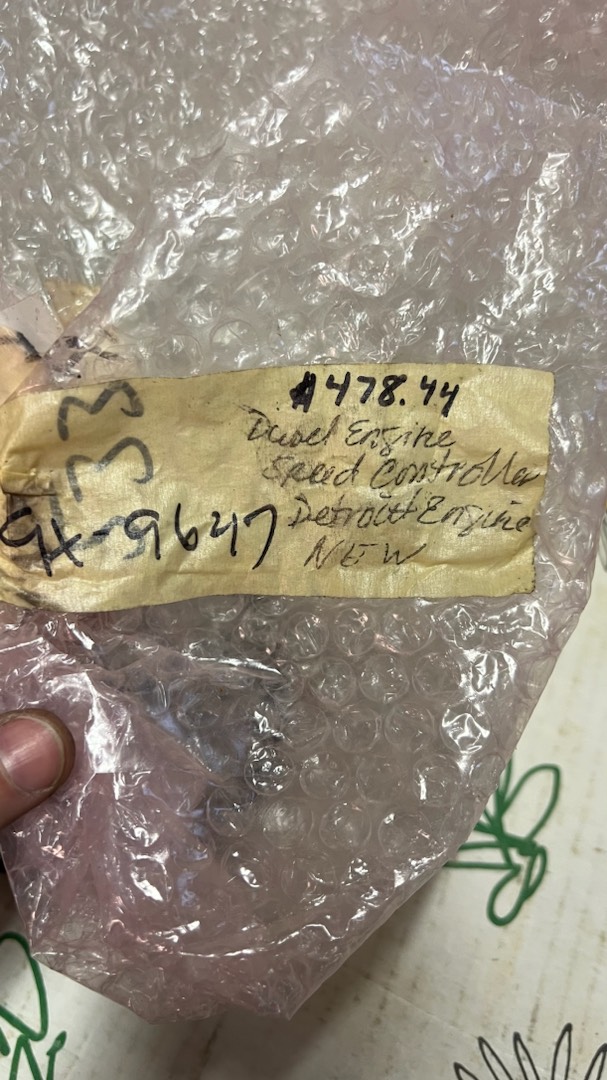 $478.44
Diesel Engine
Speed Controller
Detroit Engine
NEW
33